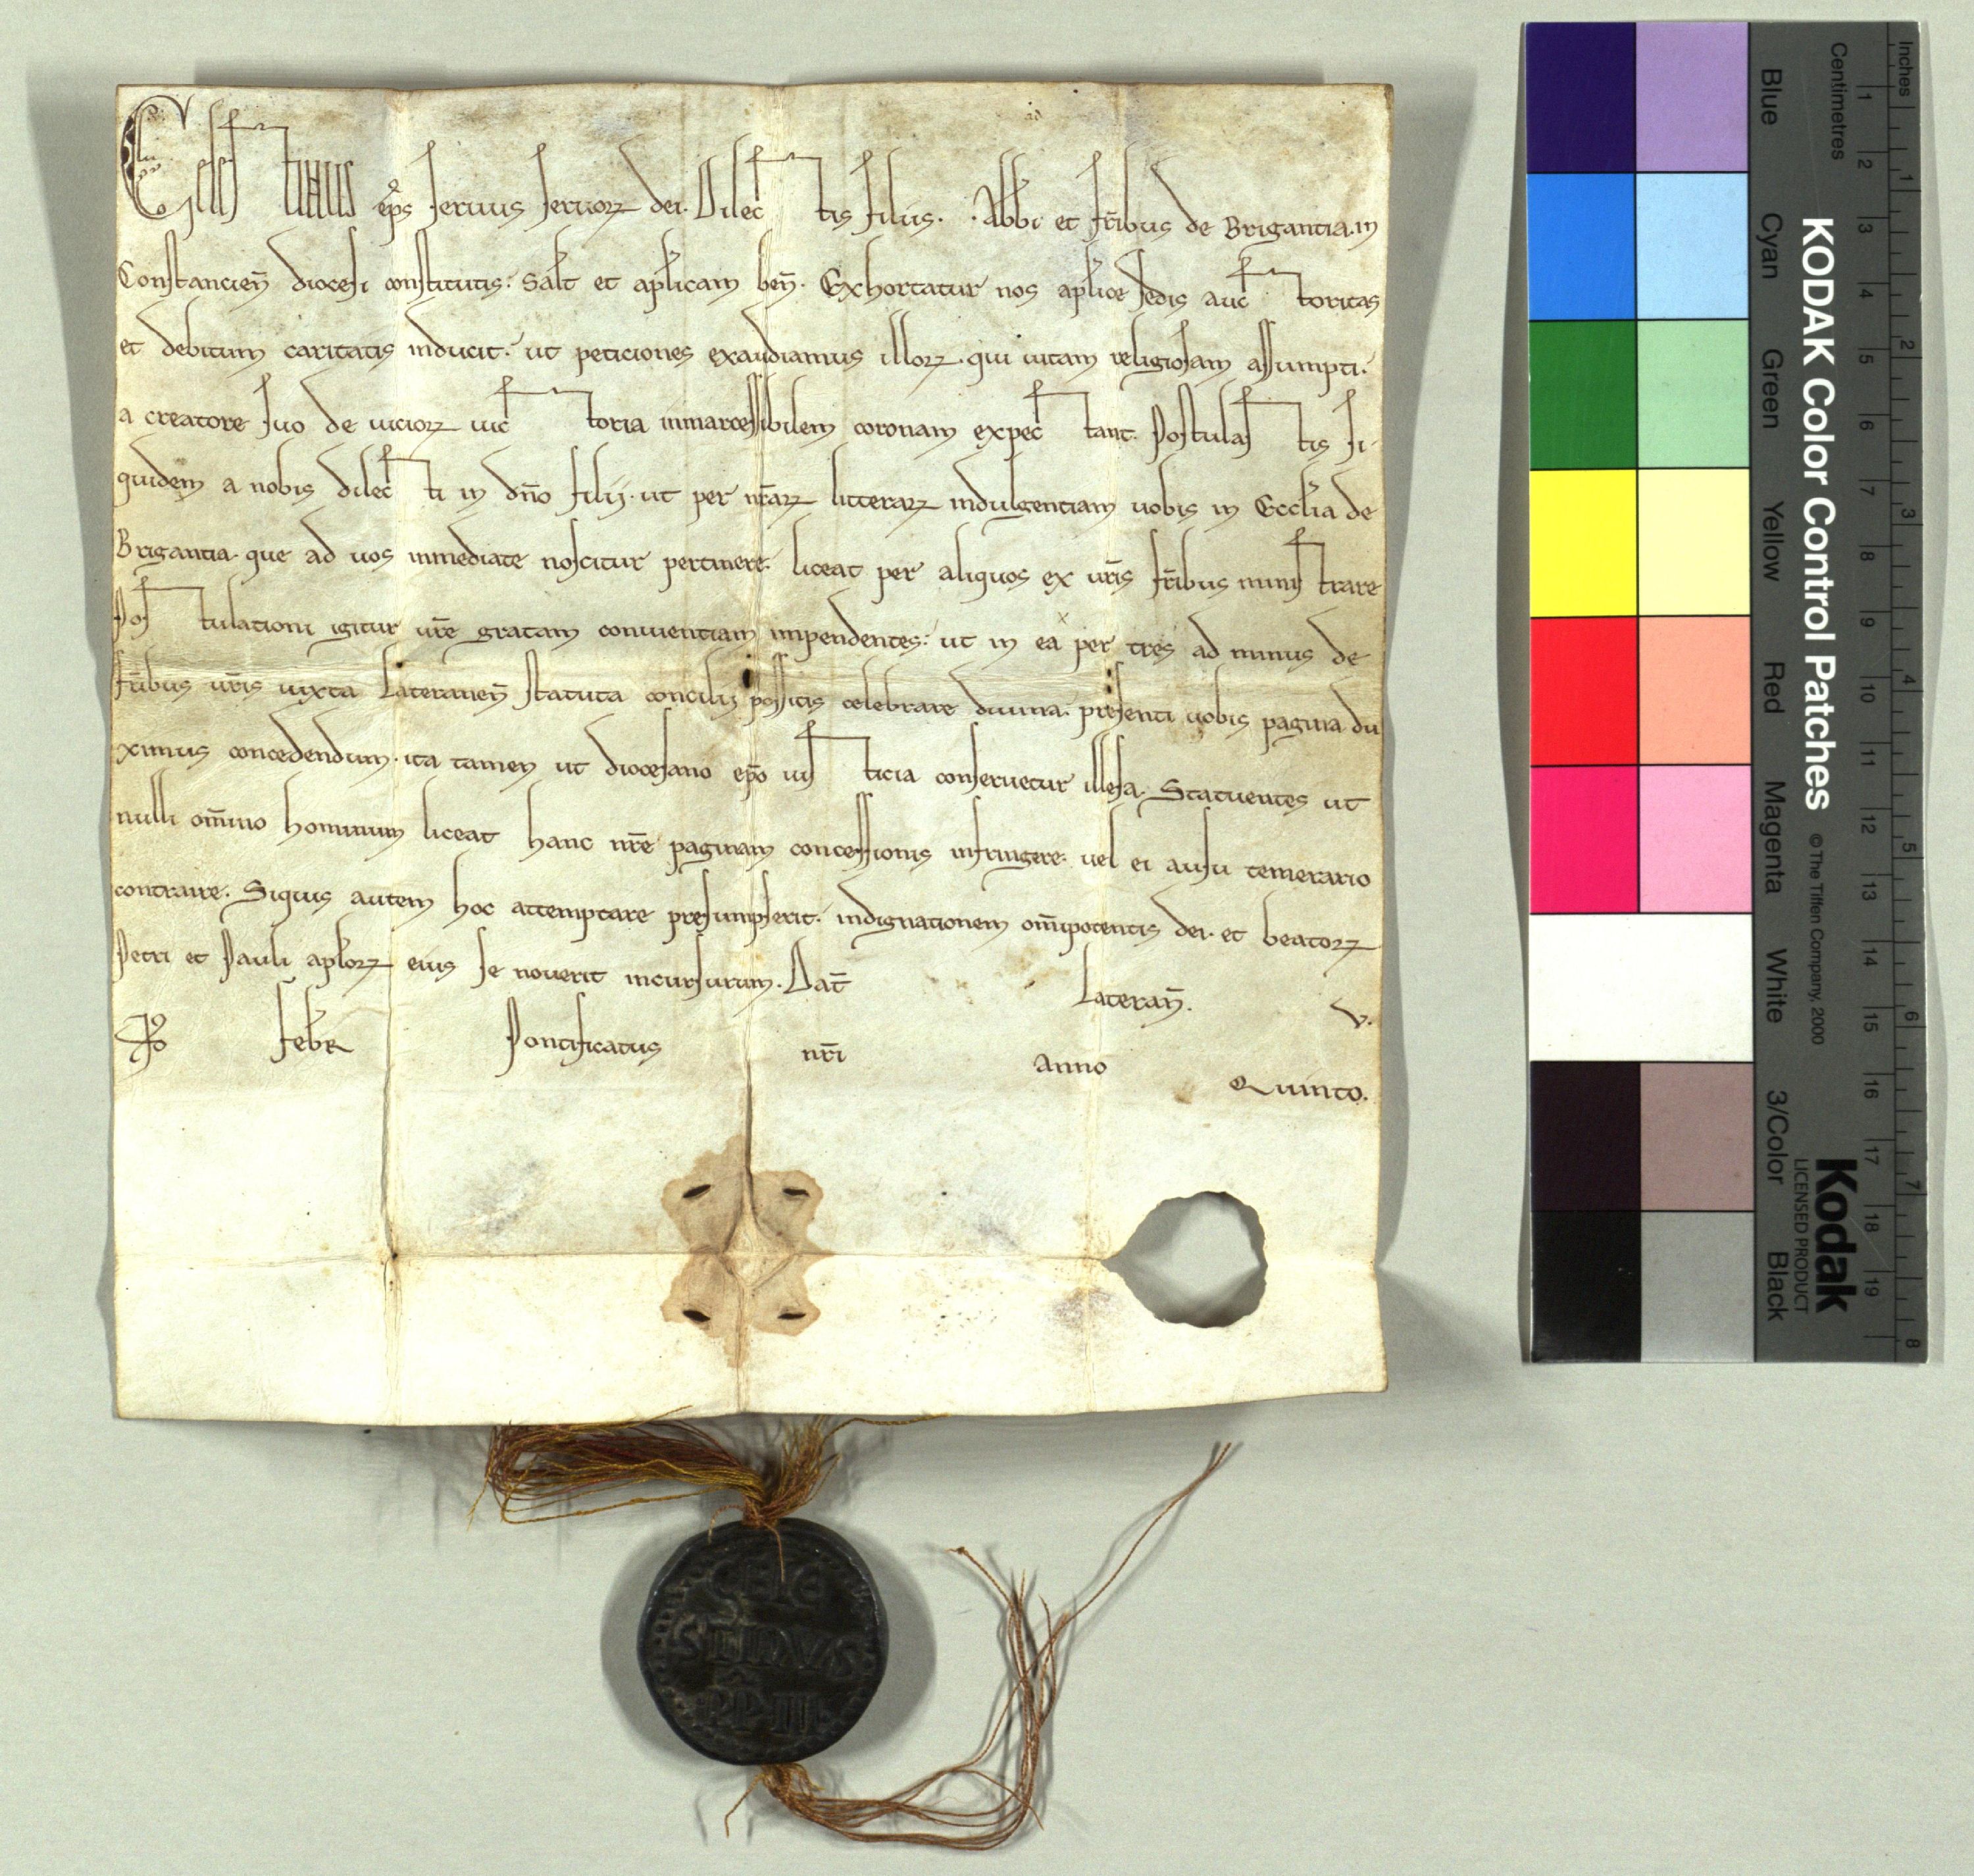 Celestinus ep̄s seruus seruorꝝ dei. Dilectis filiis. . Abbi et fr̄ibus de Brigantia. in
Constancien̄ diocesi constitutis. Salt̄ et aplicam ben̄. Exhortatur nos aplice sedis auctoritas
et debitum caritatis inducit. ut peticiones exaudiamus illorꝝ. qui uitam religiosam assumpti.
a creatore suo de uiciorꝝ uictoria inmarcessibilem coronam expectant. Postulastis si-
quidem a nobis dilecti in dn̄o filij. ut per nr̄arꝝ litterarꝝ indulgentiam uobis in Ecclia de
Brigantia. que ad uos inmediate noscitur pertinere. liceat per aliquos ex ur̄is fr̄ibus ministrare
Postulationi igitur ur̄e gratam conuentiam inpendentes. ut in ea per tres ad minus de
fr̄ibus ur̄is iuxta Lateranen̄ statuta concilij possitis celebrare diuina. presenti uobis pagina du
ximus concedendum. ita tamen ut diocesano ep̄o iusticia conseruetur illesa. Statuentes ut
nulli om̄ino hominum liceat hanc nr̄e paginam concessionis infringere. uel ei ausu temerario
contraire. Siquis autem hoc attemptare presumpserit. indignationem om̄ipotentis dei. et beatorꝝ
Petri et Pauli aplorꝝ eius se nouerit incursurum. Dat̄ Lateran̄. V.
Id̄ febr̄ Pontificatus nr̄i anno Quinto.
ad
CELE
STINVS
PP III
KODAK Color Control Patches © The Tiffen Company, 2000
Kodak
LICENSED PRODUCT
Blue Cyan Green Yellow Red Magenta White 3/Color Black
Inches 1 2 3 4 5 6 7 8
Centimetres 1 2 3 4 5 6 7 8 9 10 11 12 13 14 15 16 17 18 19